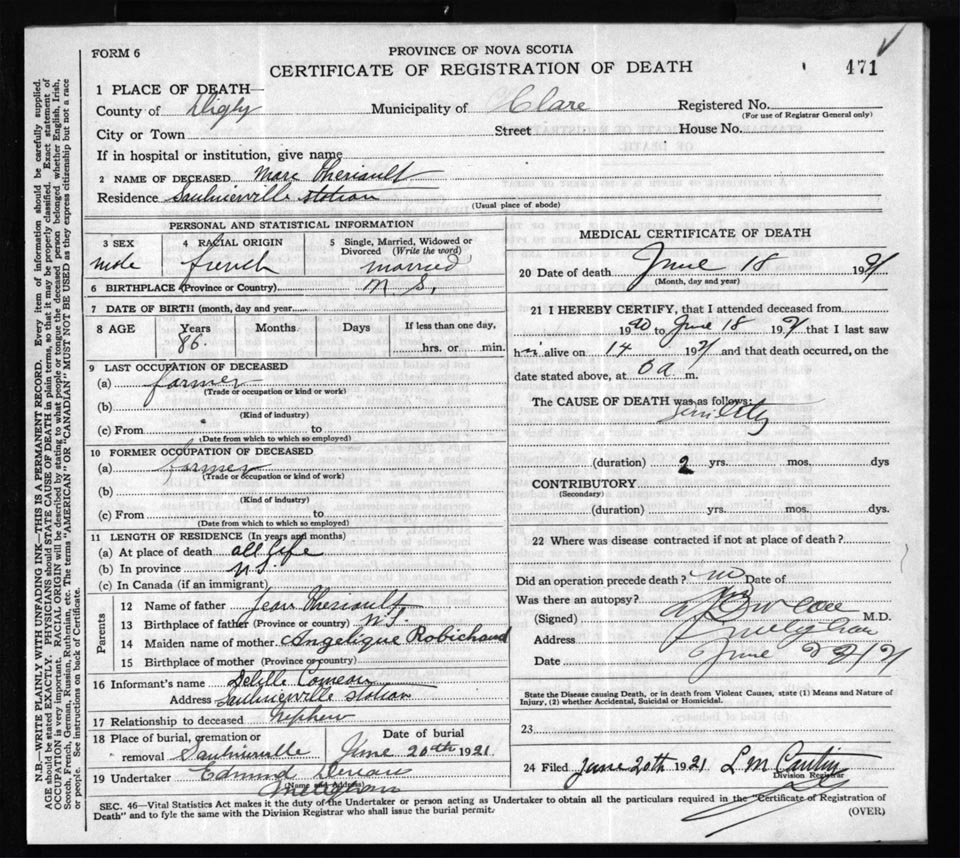 FORM 6
PROVINCE OF NOVA SCOTIA
CERTIFICATE OF REGISTRATION OF DEATH
471
1 PLACE OF DEATH—
County of Digby Municipality of Clare Registered No.
(For use of Registrar General only)
City or Town Street House No.
If in hospital or institution, give name
2 NAME OF DECEASED Marc Theriault
Residence Saulnierville Station
(Usual place of abode)
PERSONAL AND STATISTICAL INFORMATION
3 SEX 4 RACIAL ORIGIN 5 Single, Married, Widowed or Divorced (Write the word)
male french married
6 BIRTHPLACE (Province or Country) N. S.
7 DATE OF BIRTH (month, day and year)
8 AGE Years Months Days If less than one day,
86 hrs. or min.
9 LAST OCCUPATION OF DECEASED
(a) farmer
(Trade or occupation or kind of work)
(b)
(Kind of industry)
(c) From to
(Date from which to which so employed)
10 FORMER OCCUPATION OF DECEASED
(a) farmer
(Trade or occupation or kind of work)
(b)
(Kind of industry)
(c) From to
(Date from which to which so employed)
11 LENGTH OF RESIDENCE (In years and months)
(a) At place of death all life
(b) In province N.S.
(c) In Canada (if an immigrant)
Parents
12 Name of father Jean Theriault
13 Birthplace of father (Province or country) N.S.
14 Maiden name of mother Angelique Robichaud
15 Birthplace of mother (Province or country)
16 Informant's name Delille Comeau
Address Saulnierville Station
17 Relationship to deceased Nephew
18 Place of burial, cremation or removal Saulnierville
Date of burial
June 20th 1921
19 Undertaker Edmund
(Name and Address)
Meteghan
MEDICAL CERTIFICATE OF DEATH
20 Date of death June 18 1921
(Month, day and year)
21 I HEREBY CERTIFY, that I attended deceased from
1920 to June 18 1921 that I last saw
him alive on 14 1921 and that death occurred, on the
date stated above, at a. m.
The CAUSE OF DEATH was as follows:
Senility
(duration) 2 yrs. mos. dys
CONTRIBUTORY
(Secondary)
(duration) yrs. mos. dys.
22 Where was disease contracted if not at place of death?
Did an operation precede death? no Date of
Was there an autopsy? no
(Signed) M.D.
Address Meteghan
Date June 22/21
State the Disease causing Death, or in death from Violent Causes, state (1) Means and Nature of
Injury, (2) whether Accidental, Suicidal or Homicidal.
23
24 Filed June 20th 1921 L M
Division Registrar
SEC. 46—Vital Statistics Act makes it the duty of the Undertaker or person acting as Undertaker to obtain all the particulars required in the "Certificate of Registration of
Death" and to fyle the same with the Division Registrar who shall issue the burial permit.
(OVER)
N.B.—WRITE PLAINLY WITH UNFADING INK—THIS IS A PERMANENT RECORD. Every item of information should be carefully supplied.
AGE should be stated EXACTLY. PHYSICIANS should STATE CAUSE OF DEATH in plain terms, so that it may be properly classified. Exact statement of
OCCUPATION is very important. RACIAL ORIGIN will be described by stating to what people or tongue the deceased person belonged whether English, Irish,
Scotch, French, German, Russian, Ruthenian, etc. The terms "AMERICAN" OR "CANADIAN" MUST NOT BE USED as they express citizenship but not a race
or people. See instructions on back of Certificate.